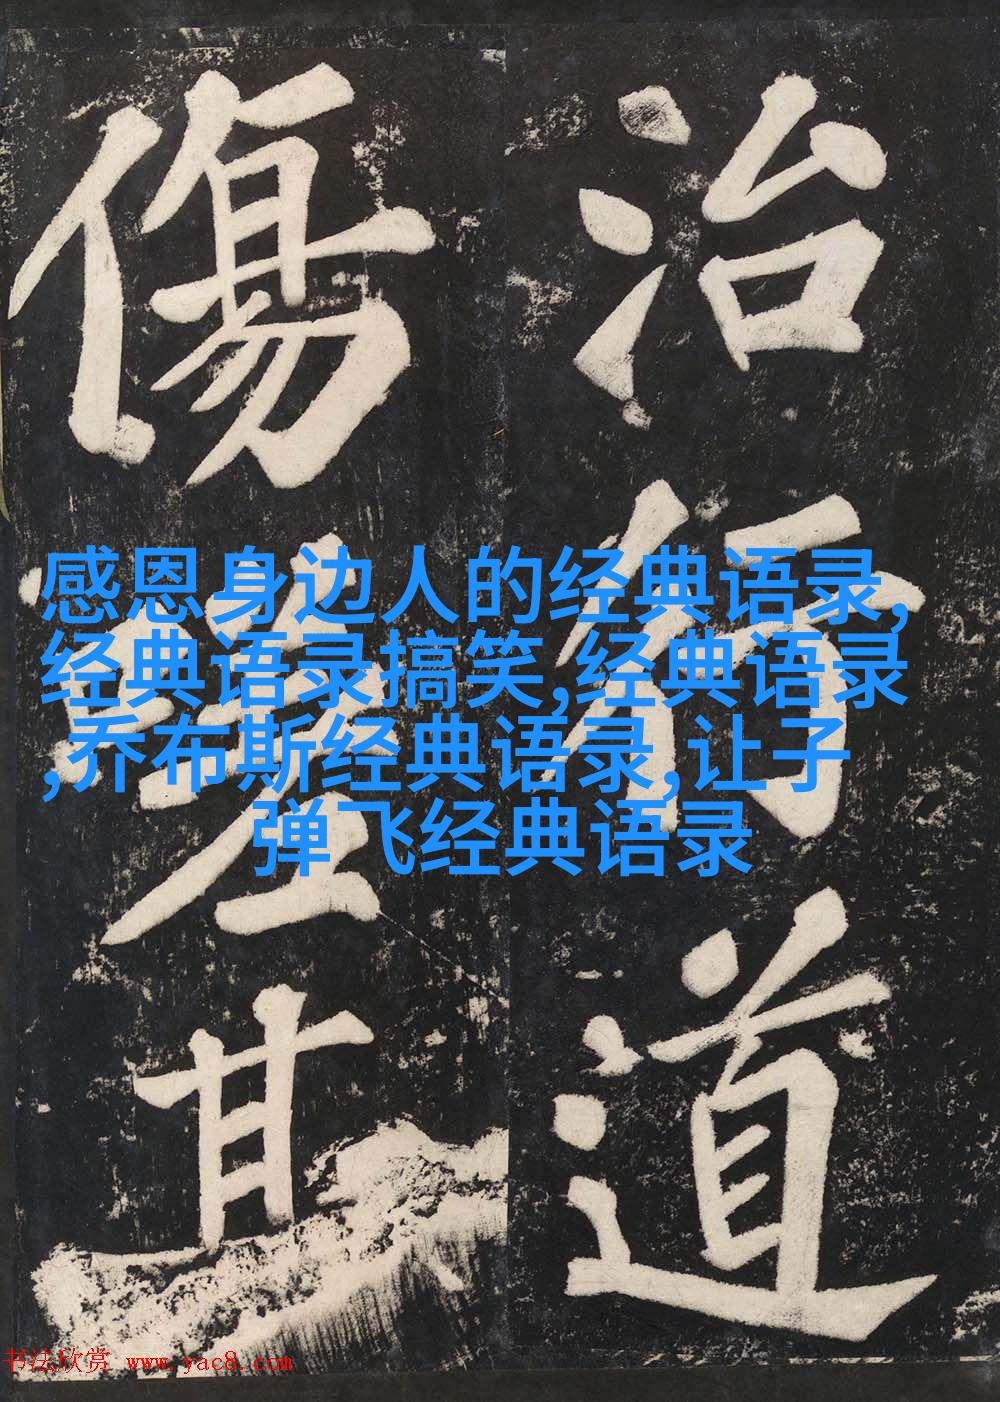 治行道
傷嗟其
感恩身边人的经典语录,
经典语录搞笑,经典语录
,乔布斯经典语录,让子
弹飞经典语录
书法欣赏 www.yac8.com